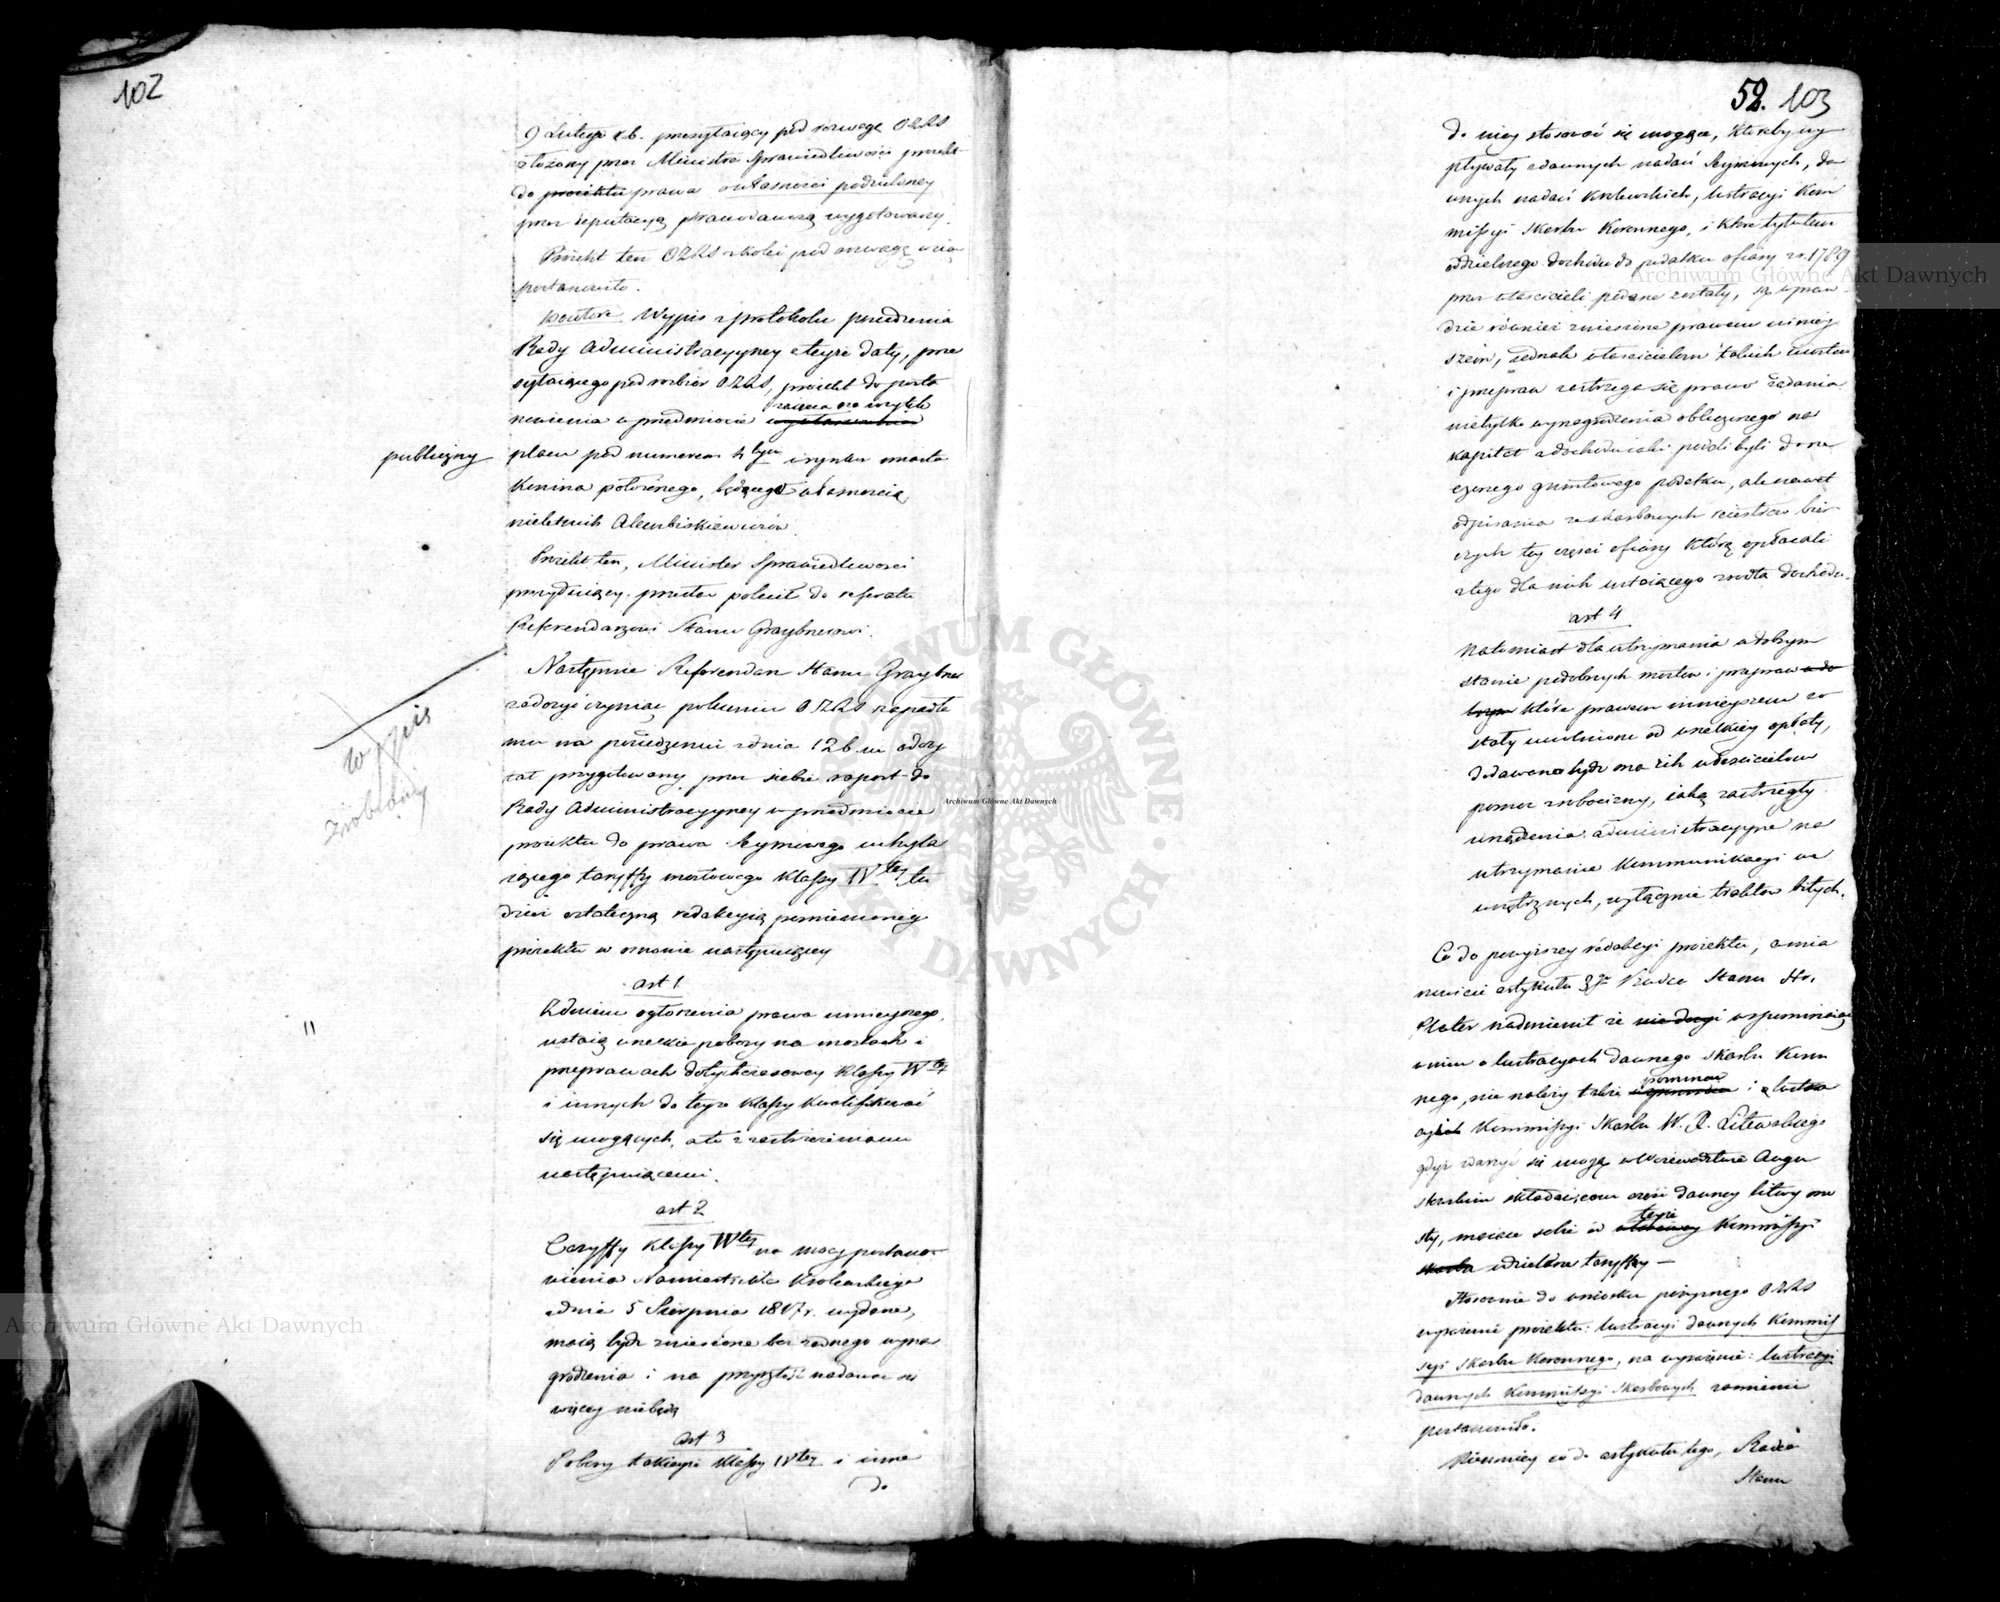 102
9 Lutego rb. przesyłaiący pod rozwagę OZRS
złożony przez Ministra Sprawiedliwości proiekt
do proiektu prawa o własności podzielney
przez deputacyą prawodawczą wygotowany.
Proiekt ten OZRS z kolei pod rozwagę wziąć
postanowiło.
Wypis z protokołu posiedzenia
Rady Administracyyney z teyże daty, prze
syłaiącego pod rozbiór OZRS, proiekt do posta
nowienia w przedmiocie
zaięcia na użytek
publiczny
placu pod numerem 4tym w rynku miasta
Konina położonego, będącego własnością
nieletnich
Proiekt ten, Minister Sprawiedliwości
prezyduiący, przesłać polecił do referatu
Referendarzowi Stanu Graybnerowi.
Następnie Referendarz Stanu Graybner
zadosyć czyniąc poleceniu OZRS zapadłe
mu na posiedzeniu z dnia 12 b. m. odczy
tał przygotowany przez siebie raport do
Rady Administracyyney w przedmiocie
proiektu do prawa Seymowego uchyla
iącego taryffy mostowego klassy IVtey tu
dzież ostateczną redakcyią pomienionego
proiektu w osnowie następuiącey
wypis
zrobiony
art 1
Z dniem ogłoszenia prawa ninieyszego,
ustaią wszelkie pobory na mostach i
przeprawach dotychczasowey klassy IVtey
i innych do teyże klassy kwalifikować
się mogących, ale z zastrzeżeniami
następuiącemi.
"
art 2
Taryffy klassy IVtey na mocy postano-
wienia Namiestnika Królewskiego
z dnia 5 Sierpnia 1817 r. wydane,
maią bydź zniesione bez żadnego wyna-
grodzenia i na przyszłość nadawane
więcey niebędą
art 3
Pobory takieyże klassy IVtey i inne
do
52. 103
do niey stosować się mogące, któreby wy
pływały z dawnych nadań Seymowych, da
wnych nadań Królewskich, lustracyi Kom
missyi Skarbu Koronnego, i które tytułem
oddzielnego dochodu do podatku ofiary z r. 1789
przez właścicieli podane zostały, są wpraw-
dzie również zniesione prawem ninieу
szem, jednak właścicielom takich mostów
i przepraw zastrzega się prawo żądania
nietylko wynagrodzenia obliczonego na
kapitał z dochodu iaki podali byli do rze
czonego gruntowego podatku, ale nawet
odpisania ze skarbowych reiestrów bier-
czych tey części ofiary którą opłacali
z tego dla nich ustaiącego źródła dochodu.
art 4
Natomiast dla utrzymania w dobrym
stanie podobnych mostów i przepraw w do
brym które prawem ninieyszem zo
stały uwolnione od wszelkiey opłaty,
dodawana bydź ma ich właścicielom
pomoc w robociźnie, iaką zastrzegły
urządzenia administracyyne na
utrzymanie kommunikacyi we
wnętrznych, wyłącznie traktów bitych.
Co do powyższey redakcyi proiektu, a mia
nowicie artykułu 3go Radca Stanu Hr.
Plater nadmienił że wspominaiąc
w nim o lustracyach dawnego Skarbu Koron
nego, nie należy także
pominąć
i lustra
cyiach Kommissyi Skarbu W. X. Litewskiego
gdyż zdarzyć się mogą w Woiewództwie Augu
stowskim składaiącem część dawney Litwy mo
sty, maiące sobie od
teyże
Kommissyi
Skarbu udzielone taryffy —
Stosownie do wniosku powyższego OZRS
wyrażenie proiektu: lustracyi dawnych Kommis
syi Skarbu Koronnego, na wyrażenie: lustracyi
dawnych Kommissyi Skarbowych zamienić
postanowiło.
Również co do artykułu tego, Radca
Stanu
Archiwum Główne Akt Dawnych
Archiwum Główne Akt Dawnych
Archiwum Główne Akt Dawnych
ARCHIWUM GŁÓWNE AKT DAWNYCH